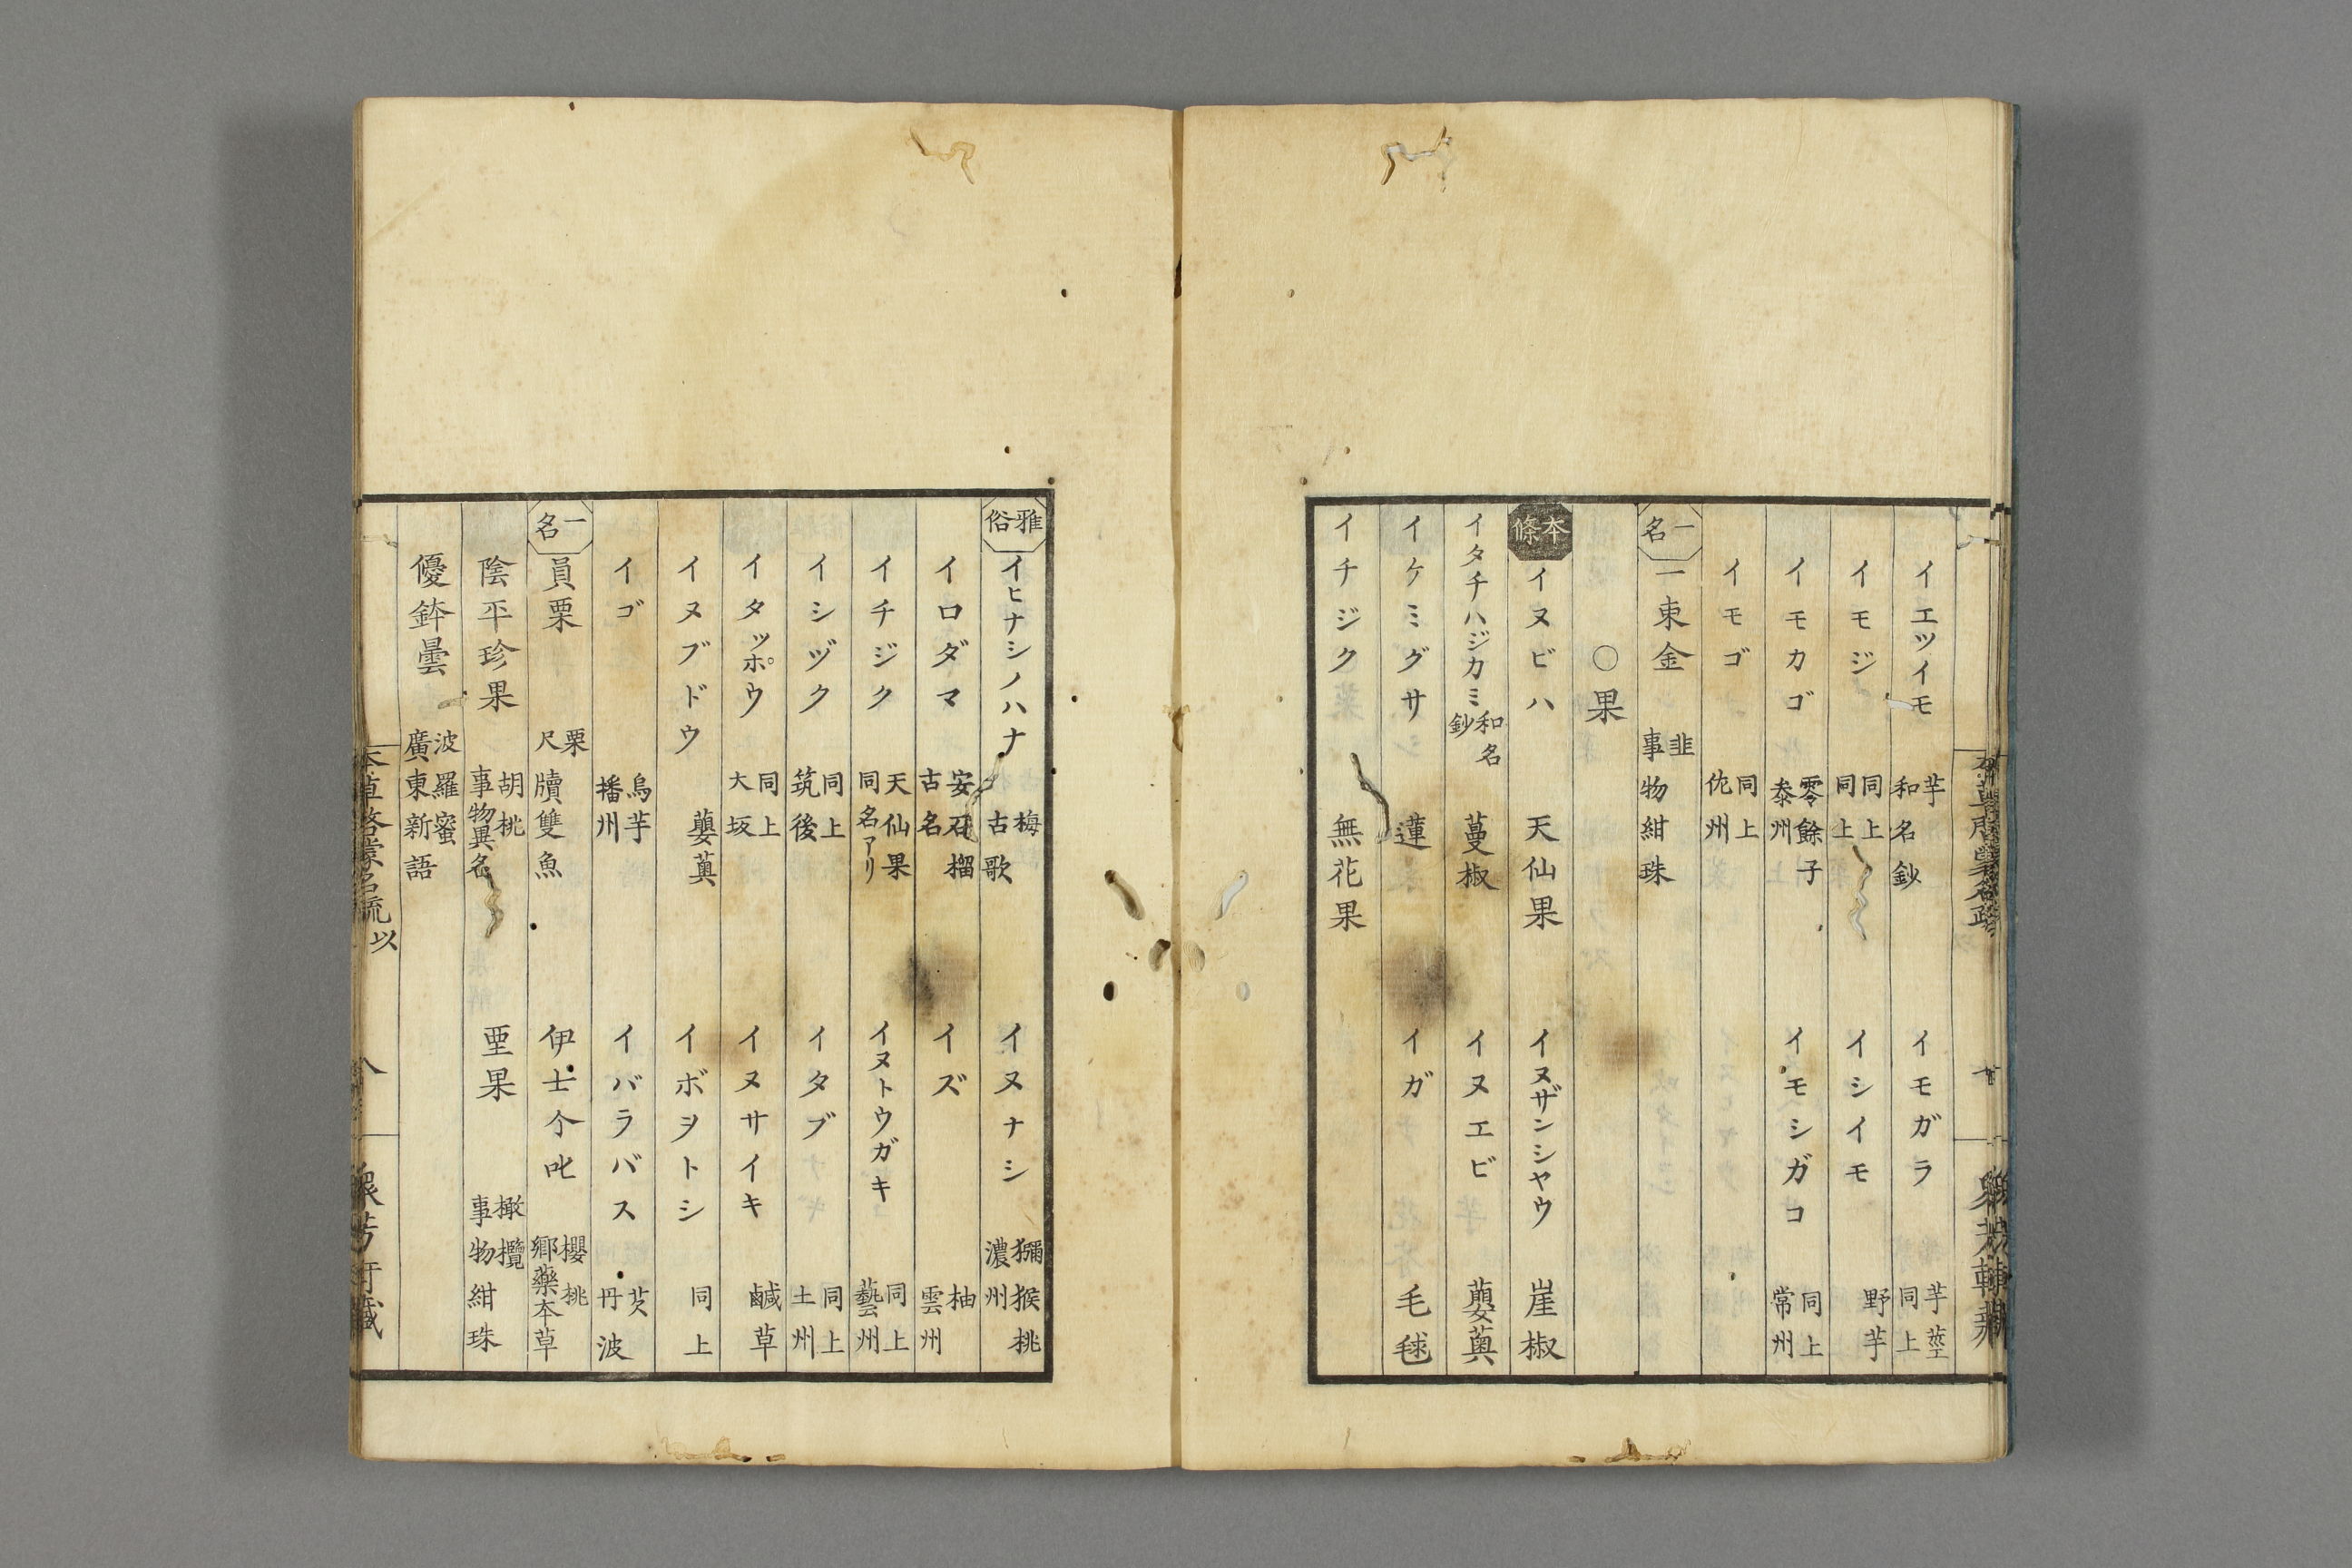 イエツイモ 芋 和名鈔 イモガラ 芋莖 同上
イモジ 同上 同上 イシイモ 野芋
イモカゴ 零餘子 泰州 イモシガコ 同上 常州
イモゴ 同上 佐州
一名 一束金 韭 事物紺珠
○果
本條 イヌビハ 天仙果 イヌザンシヤウ 崖椒
イタチハジカミ 和名鈔 蔓椒 イヌエビ 蘡薁
イケミグサ 蓮 イガ 毛毬
イチジク 無花果
雅俗 イヒナシノハナ 梅 古歌 イヌナシ 獼猴桃 濃州
イロダマ 安石榴 古名 イズ 柚 雲州
イチジク 天仙果 同名アリ イヌトウガキ 同上 藝州
イシヅク 同上 筑後 イタブ 同上 土州
イタッポウ 同上 大坂 イヌサイキ 鹹草
イヌブドウ 蘡薁 イボヲトシ 同上
イゴ 烏芋 播州 イバラバス 芡 丹波
一名 員栗 栗 尺牘雙魚 伊士个叱 櫻桃 鄉藥本草
陰平珍果 胡桃 事物異名 堊果 橄欖 事物紺珠
優鉢曇 波羅蜜 廣東新語
本草啓蒙名疏 以 八 衆芳軒藏